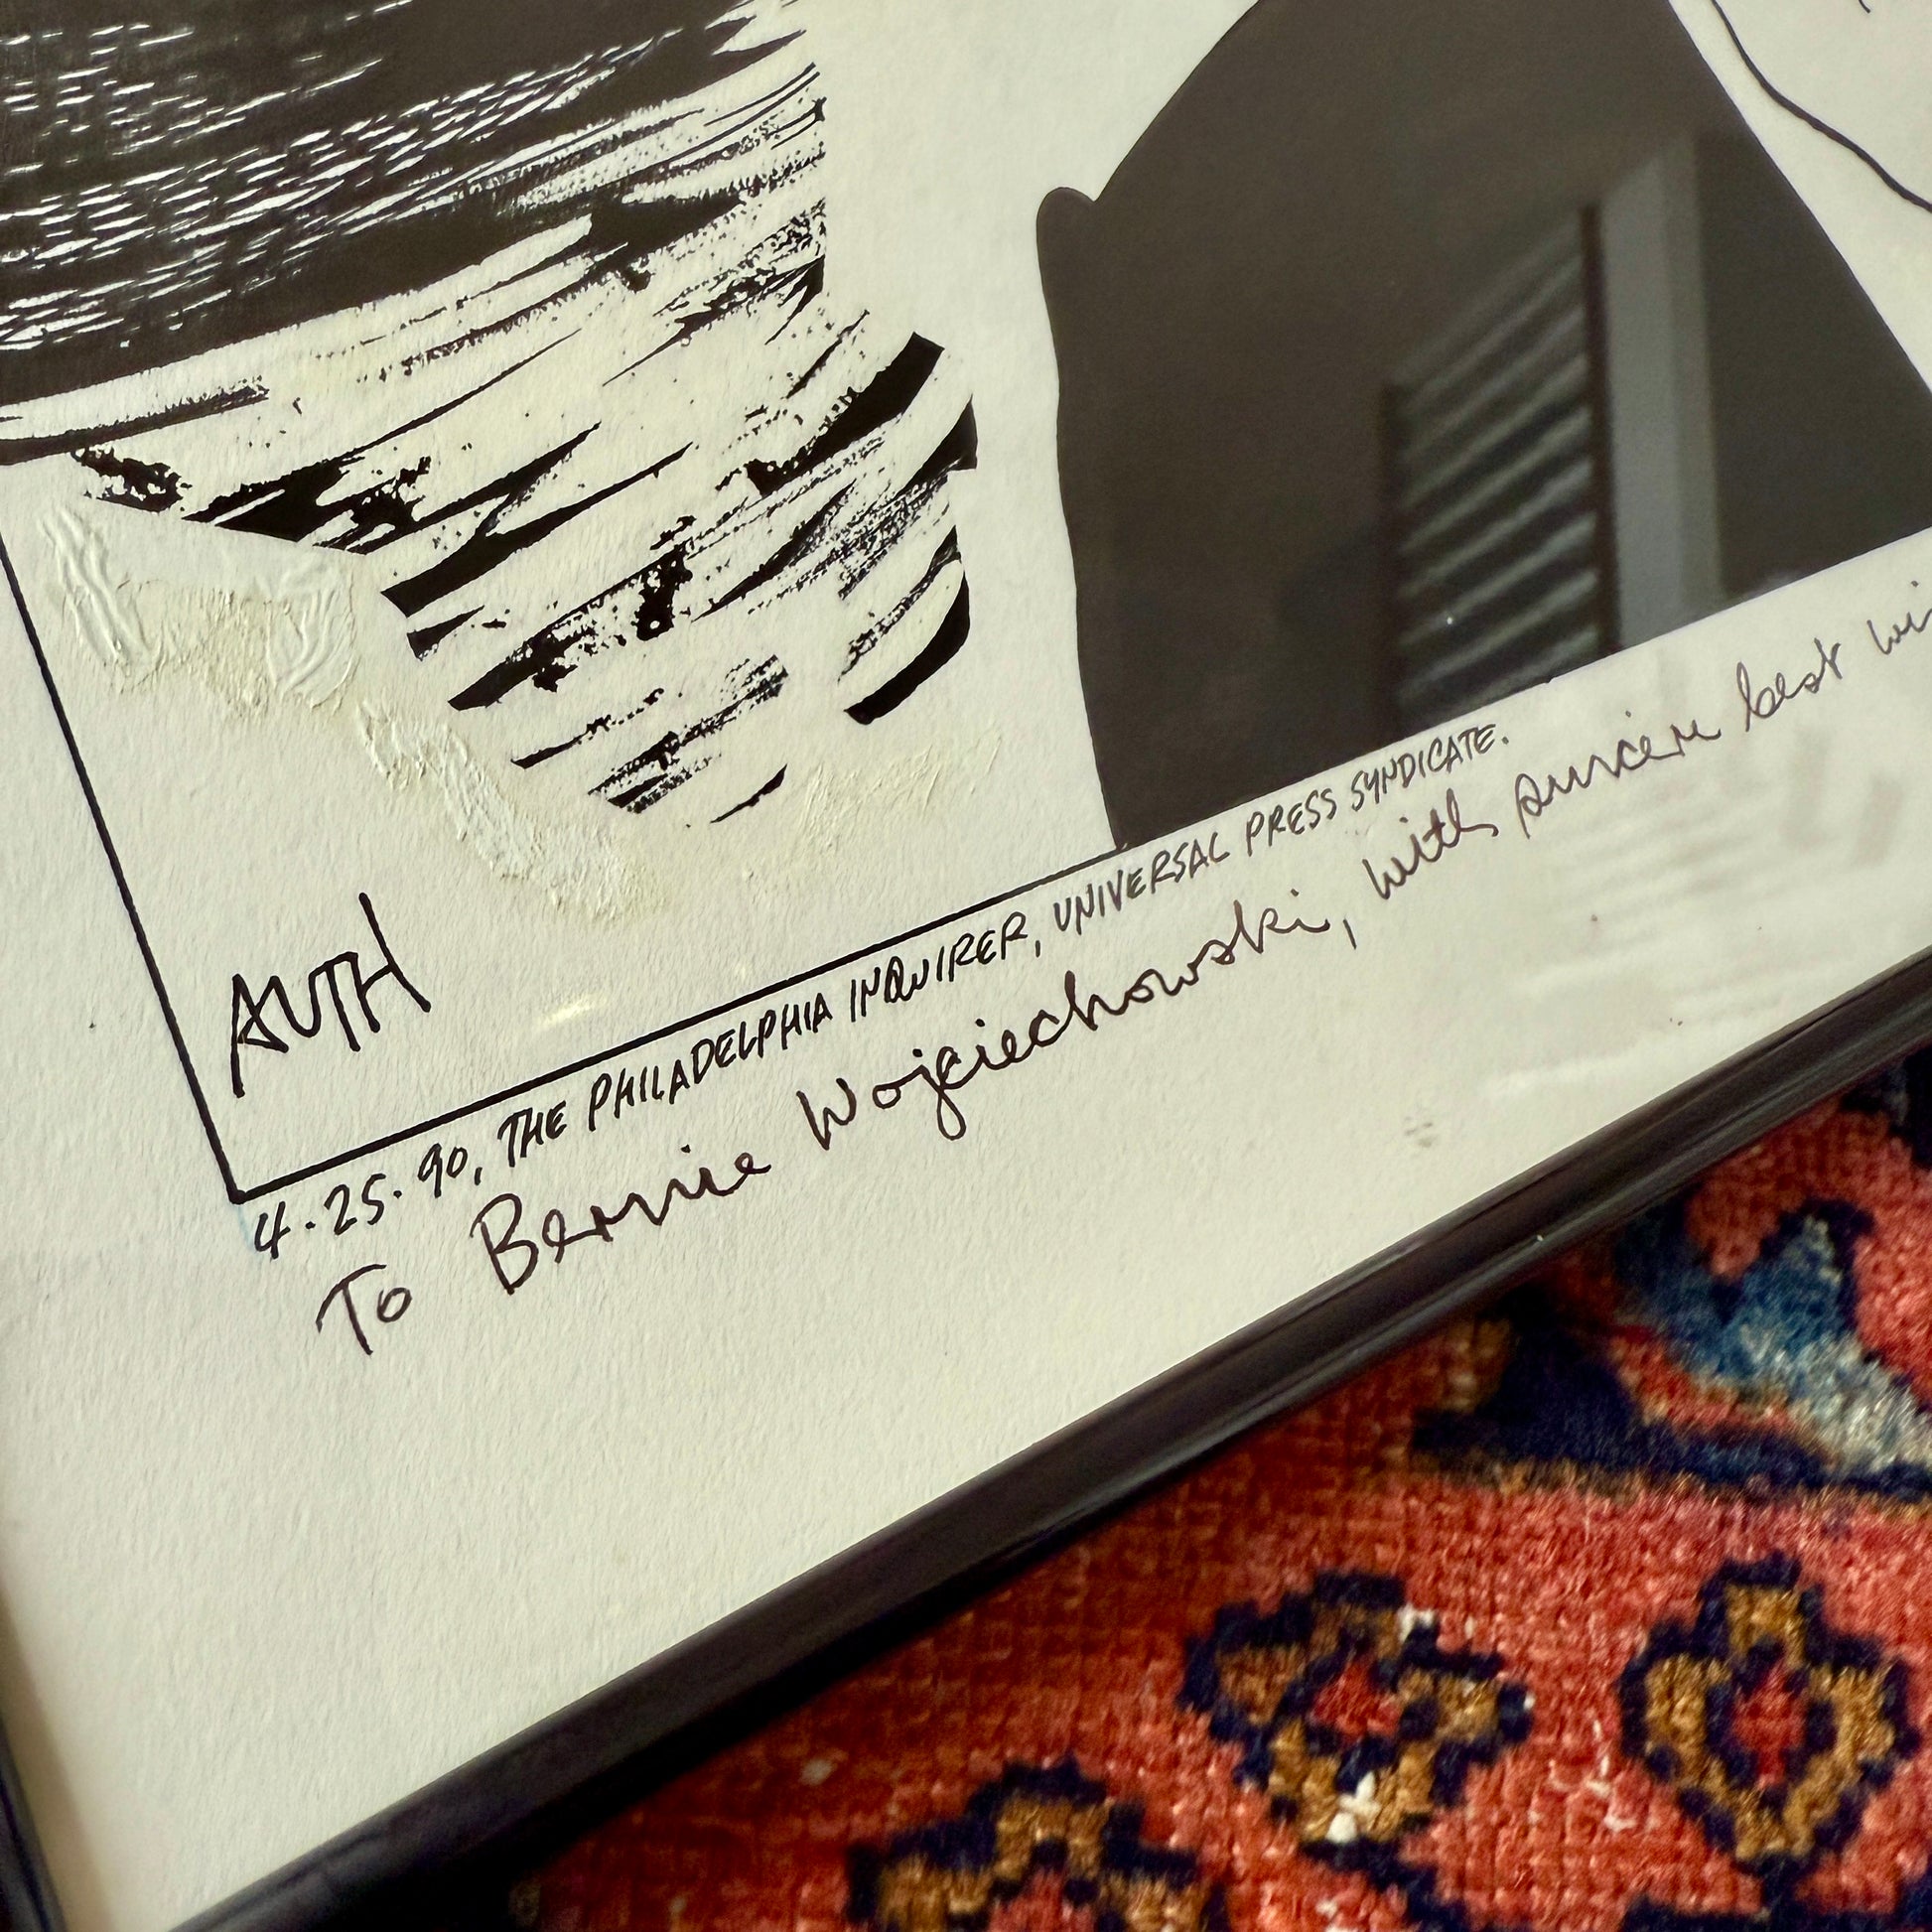 AUTH
4·25·90, THE PHILADELPHIA INQUIRER, UNIVERSAL PRESS SYNDICATE.
To Bernie Wojciechowski, with sincere best wi